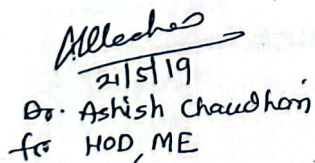 21/5/19
Dr. Ashish Chaudhari
for HOD, ME